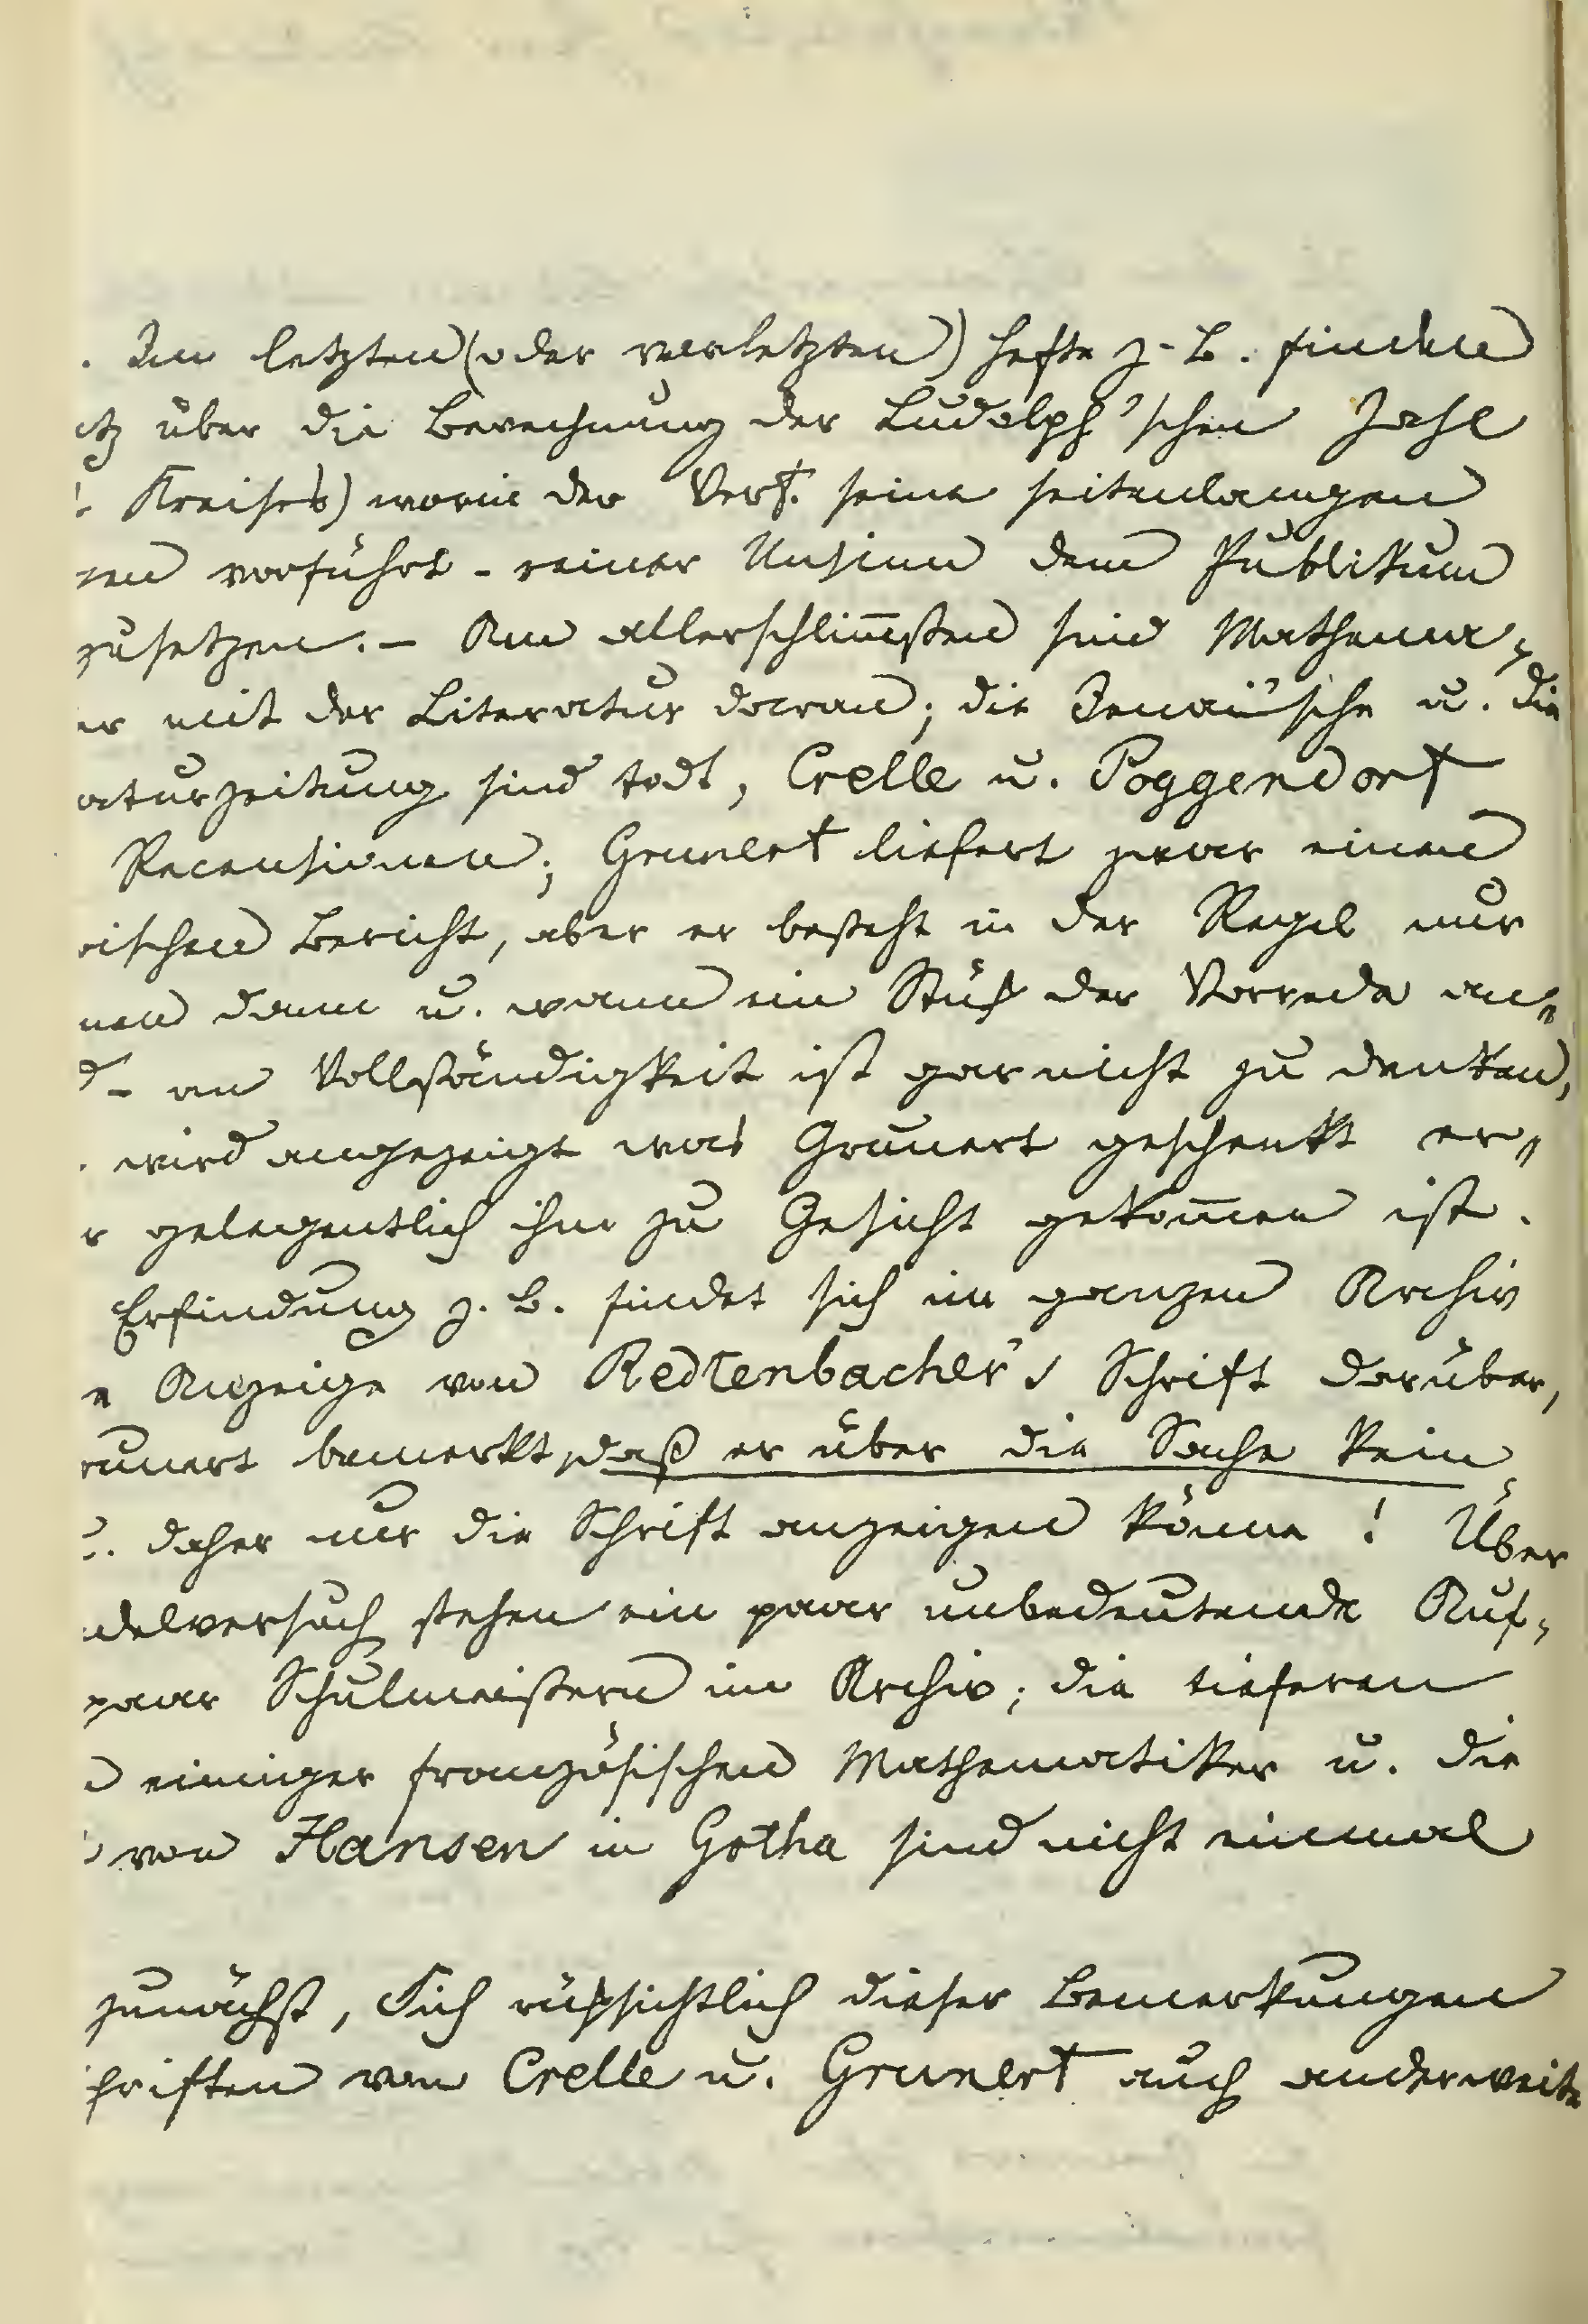 . Im letzten (oder vorletzten) Hefte z. B. finden
tz über die Berechnung der Ludolph'schen Zahl
Kreises) worin der Verf. seine seitenlangen
en vorführt - reiner Unsinn dem Publikum
zusetzen. – Am allerschlim̅sten sind Mathema-
er mit der Literatur daran; die Jenaische u. die
aturzeitung sind todt, Crelle u. Poggendorf
Recensionen; Grunert liefert zwar einen
rischen Bericht, aber er besteht in der Regel nur
nen dann u. wann ein Stück der Vorrede an=
d - an Vollständigkeit ist gar nicht zu denken,
. wird angezeigt was Grunert geschenkt er=
r gelegentlich ihm zu Gesicht gekom̅en ist.
Erfindung z. B. findet sich im ganzen Archiv
e Anzeige von Redtenbacher's Schrift darüber,
runert bemerkt, daß er über die Sache kein
u. daher nur die Schrift anzeigen könne! Über
delversuch stehen ein paar unbedeutende Auf-
paar Schulmeistern im Archiv; die tieferen
n einiger französischen Mathematiker u. die
von Hansen in Gotha sind nicht einmal
zunächst, Sich rücksichtlich dieser Bemerkungen
chriften von Crelle u. Grunert auch anderweite